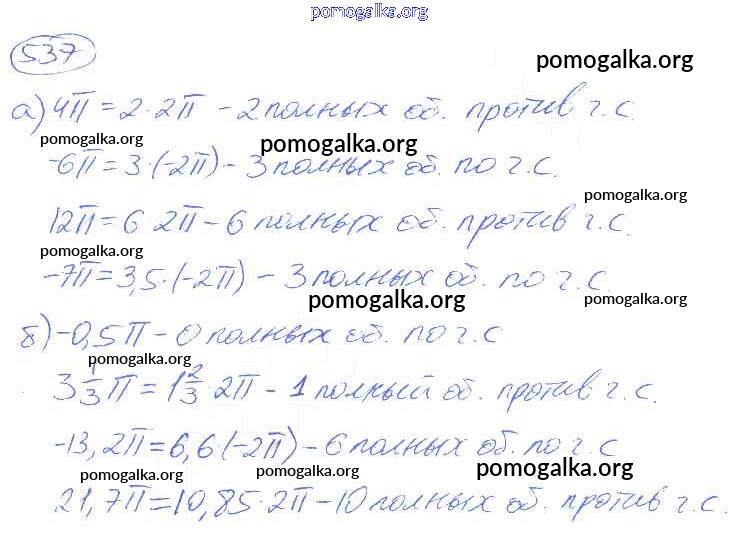 pomogalka.org
537
pomogalka.org
а) 4π = 2·2π – 2 полных об. против ч.с.
pomogalka.org pomogalka.org
-6π = 3·(-2π) – 3 полных об. по ч.с.
pomogalka.org
12π = 6 2π – 6 полных об. против ч.с.
pomogalka.org
-7π = 3,5·(-2π) – 3 полных об. по ч.с.
pomogalka.org pomogalka.org
б) -0,5π – 0 полных об. по ч.с
pomogalka.org
3 1/3 π = 1 2/3 · 2π – 1 полный об. против ч.с.
-13,2π = 6,6·(-2π) – 6 полных об. по ч.с.
pomogalka.org pomogalka.org pomogalka.org
21,7π = 10,85·2π – 10 полных об. против ч.с.